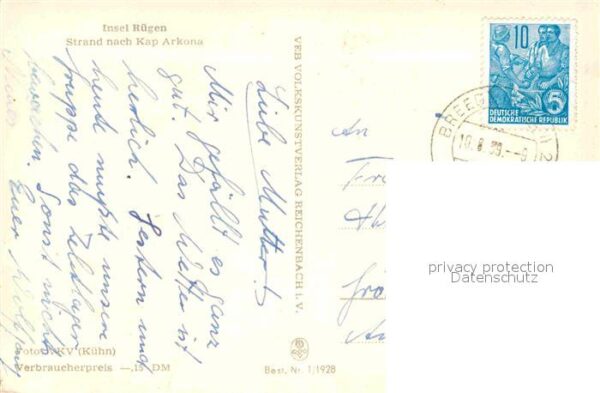 Insel Rügen
Strand nach Kap Arkona
Liebe Mutter!
Mir gefällt es ganz
gut. Das Wetter ist
herlich. Gestern und
heute mußte unsere
Gruppe das Zeltlager
bewachen. Sonst nichts
Euer Wolfgang
Foto: VKV (Kühn)
Verbraucherpreis —,15 DM
VEB VOLKSKUNSTVERLAG REICHENBACH i. V.
Best. Nr. 1/1928
10
DEUTSCHE
DEMOKRATISCHE REPUBLIK
5
BREEGE
10.8.59.--9
An
privacy protection
Datenschutz